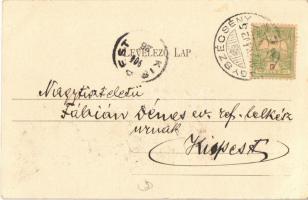 LEVELEZŐ LAP
NAGYSZÉCSÉNY
Nagytiszteletű
Fábián Dénes ev. ref. lelkész
úrnak
Kispest